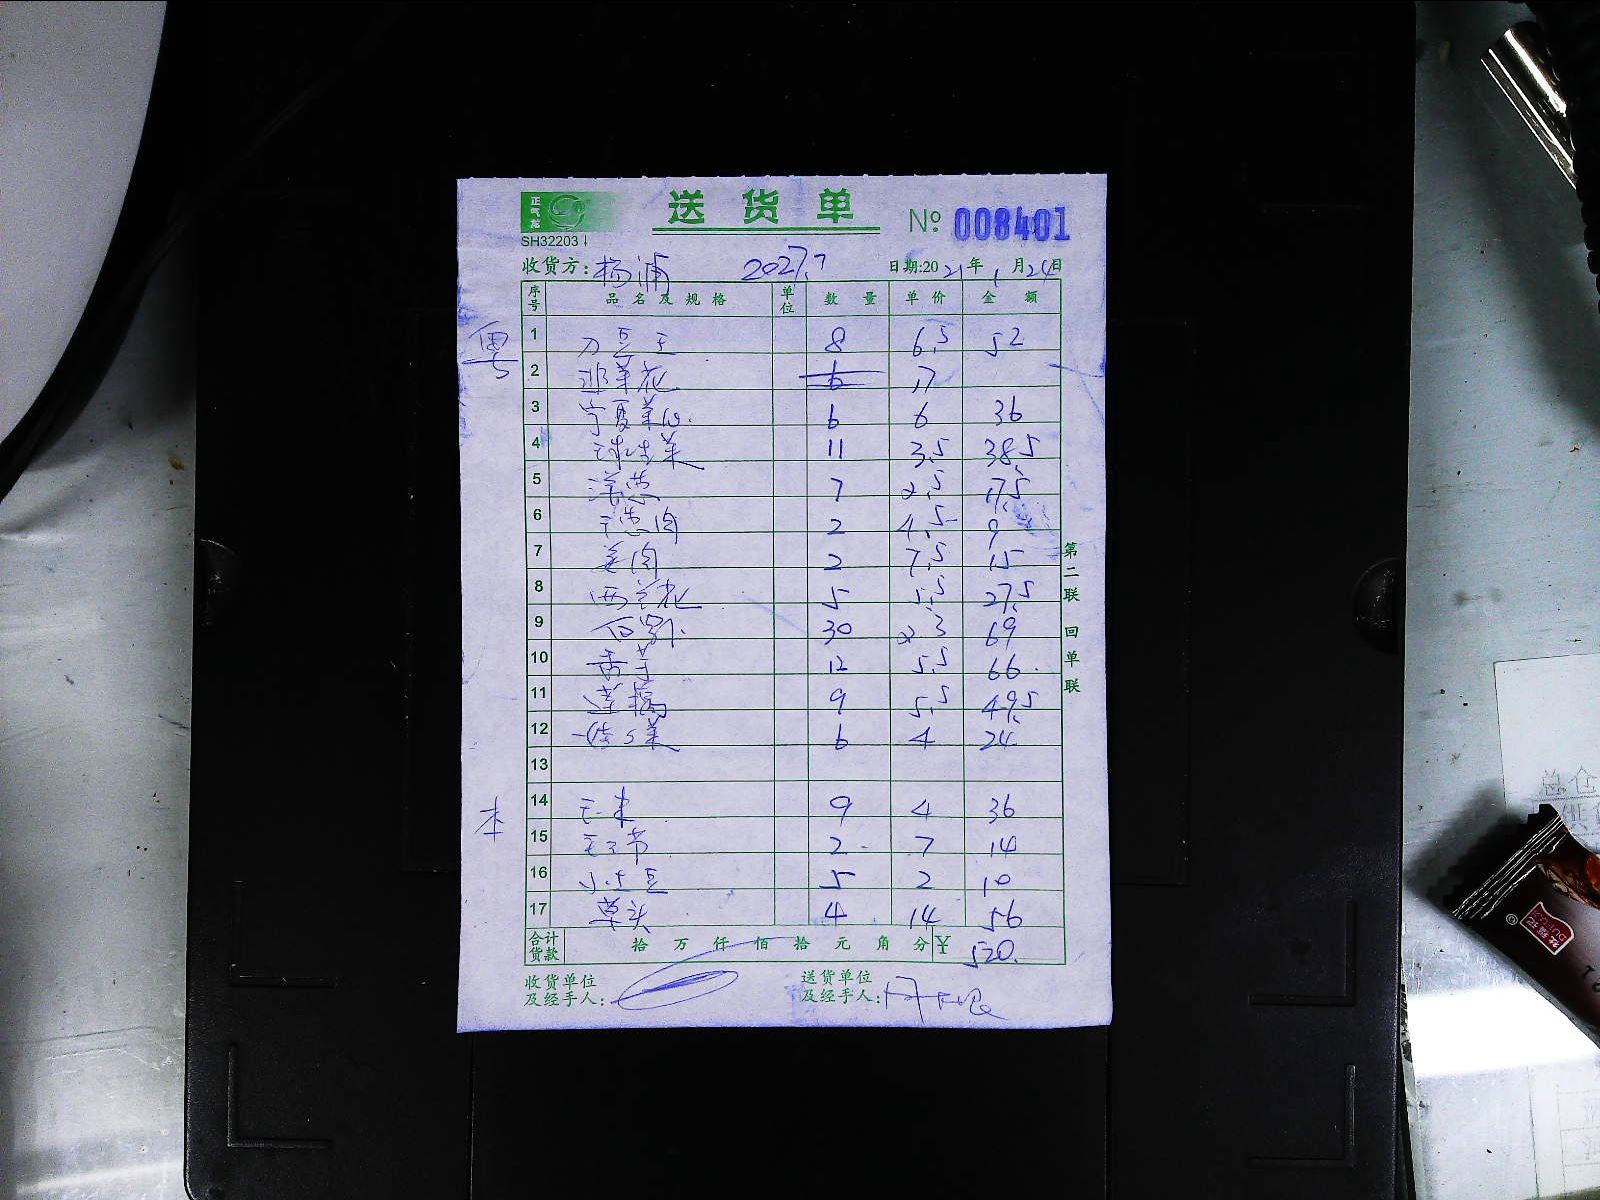 正气龙
送货单
№ 008401
SH32203
收货方: 杨浦 2027.7 日期:2021年1月24日
序号 品名及规格 单位 数量 单价 金额
粤
1 刀豆王 8 6.5 52
2 韭菜花 6 17
3 宁夏菜心 6 6 36
4 球生菜 11 3.5 38.5
5 洋葱 7 2.5 17.5
6 2 4.5 9
7 姜肉 2 7.5 15
8 西兰花 5 5.5 27.5
9 白萝卜 30 2.3 69
10 香芋 12 5.5 66
11 9 5.5 49.5
12 6 4 24
13
本
14 玉米 9 4 36
15 2 7 14
16 小土豆 5 2 10
17 草头 4 14 56
合计货款 拾万仟佰拾元角分 ¥ 520.
收货单位及经手人:
送货单位及经手人:
第二联 回单联
总仓